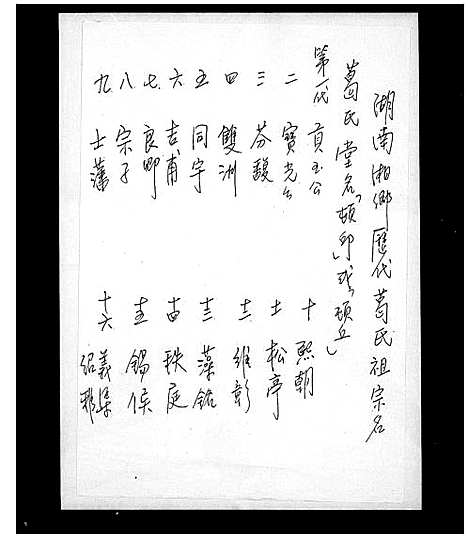 湖南湘鄉歷代葛氏祖宗名
葛氏堂名「頓邱」或「頓丘」
第一代 貢玉公
二 寶光公
三 芬馥
四 雙洲
五 同宇
六 吉甫
七 良卿
八 宗子
九 士藩
十 熙朝
十一 松亭
十二 維彰
十三 藻銘
十四 秩庭
十五 錫侯
十六 義渠
紹